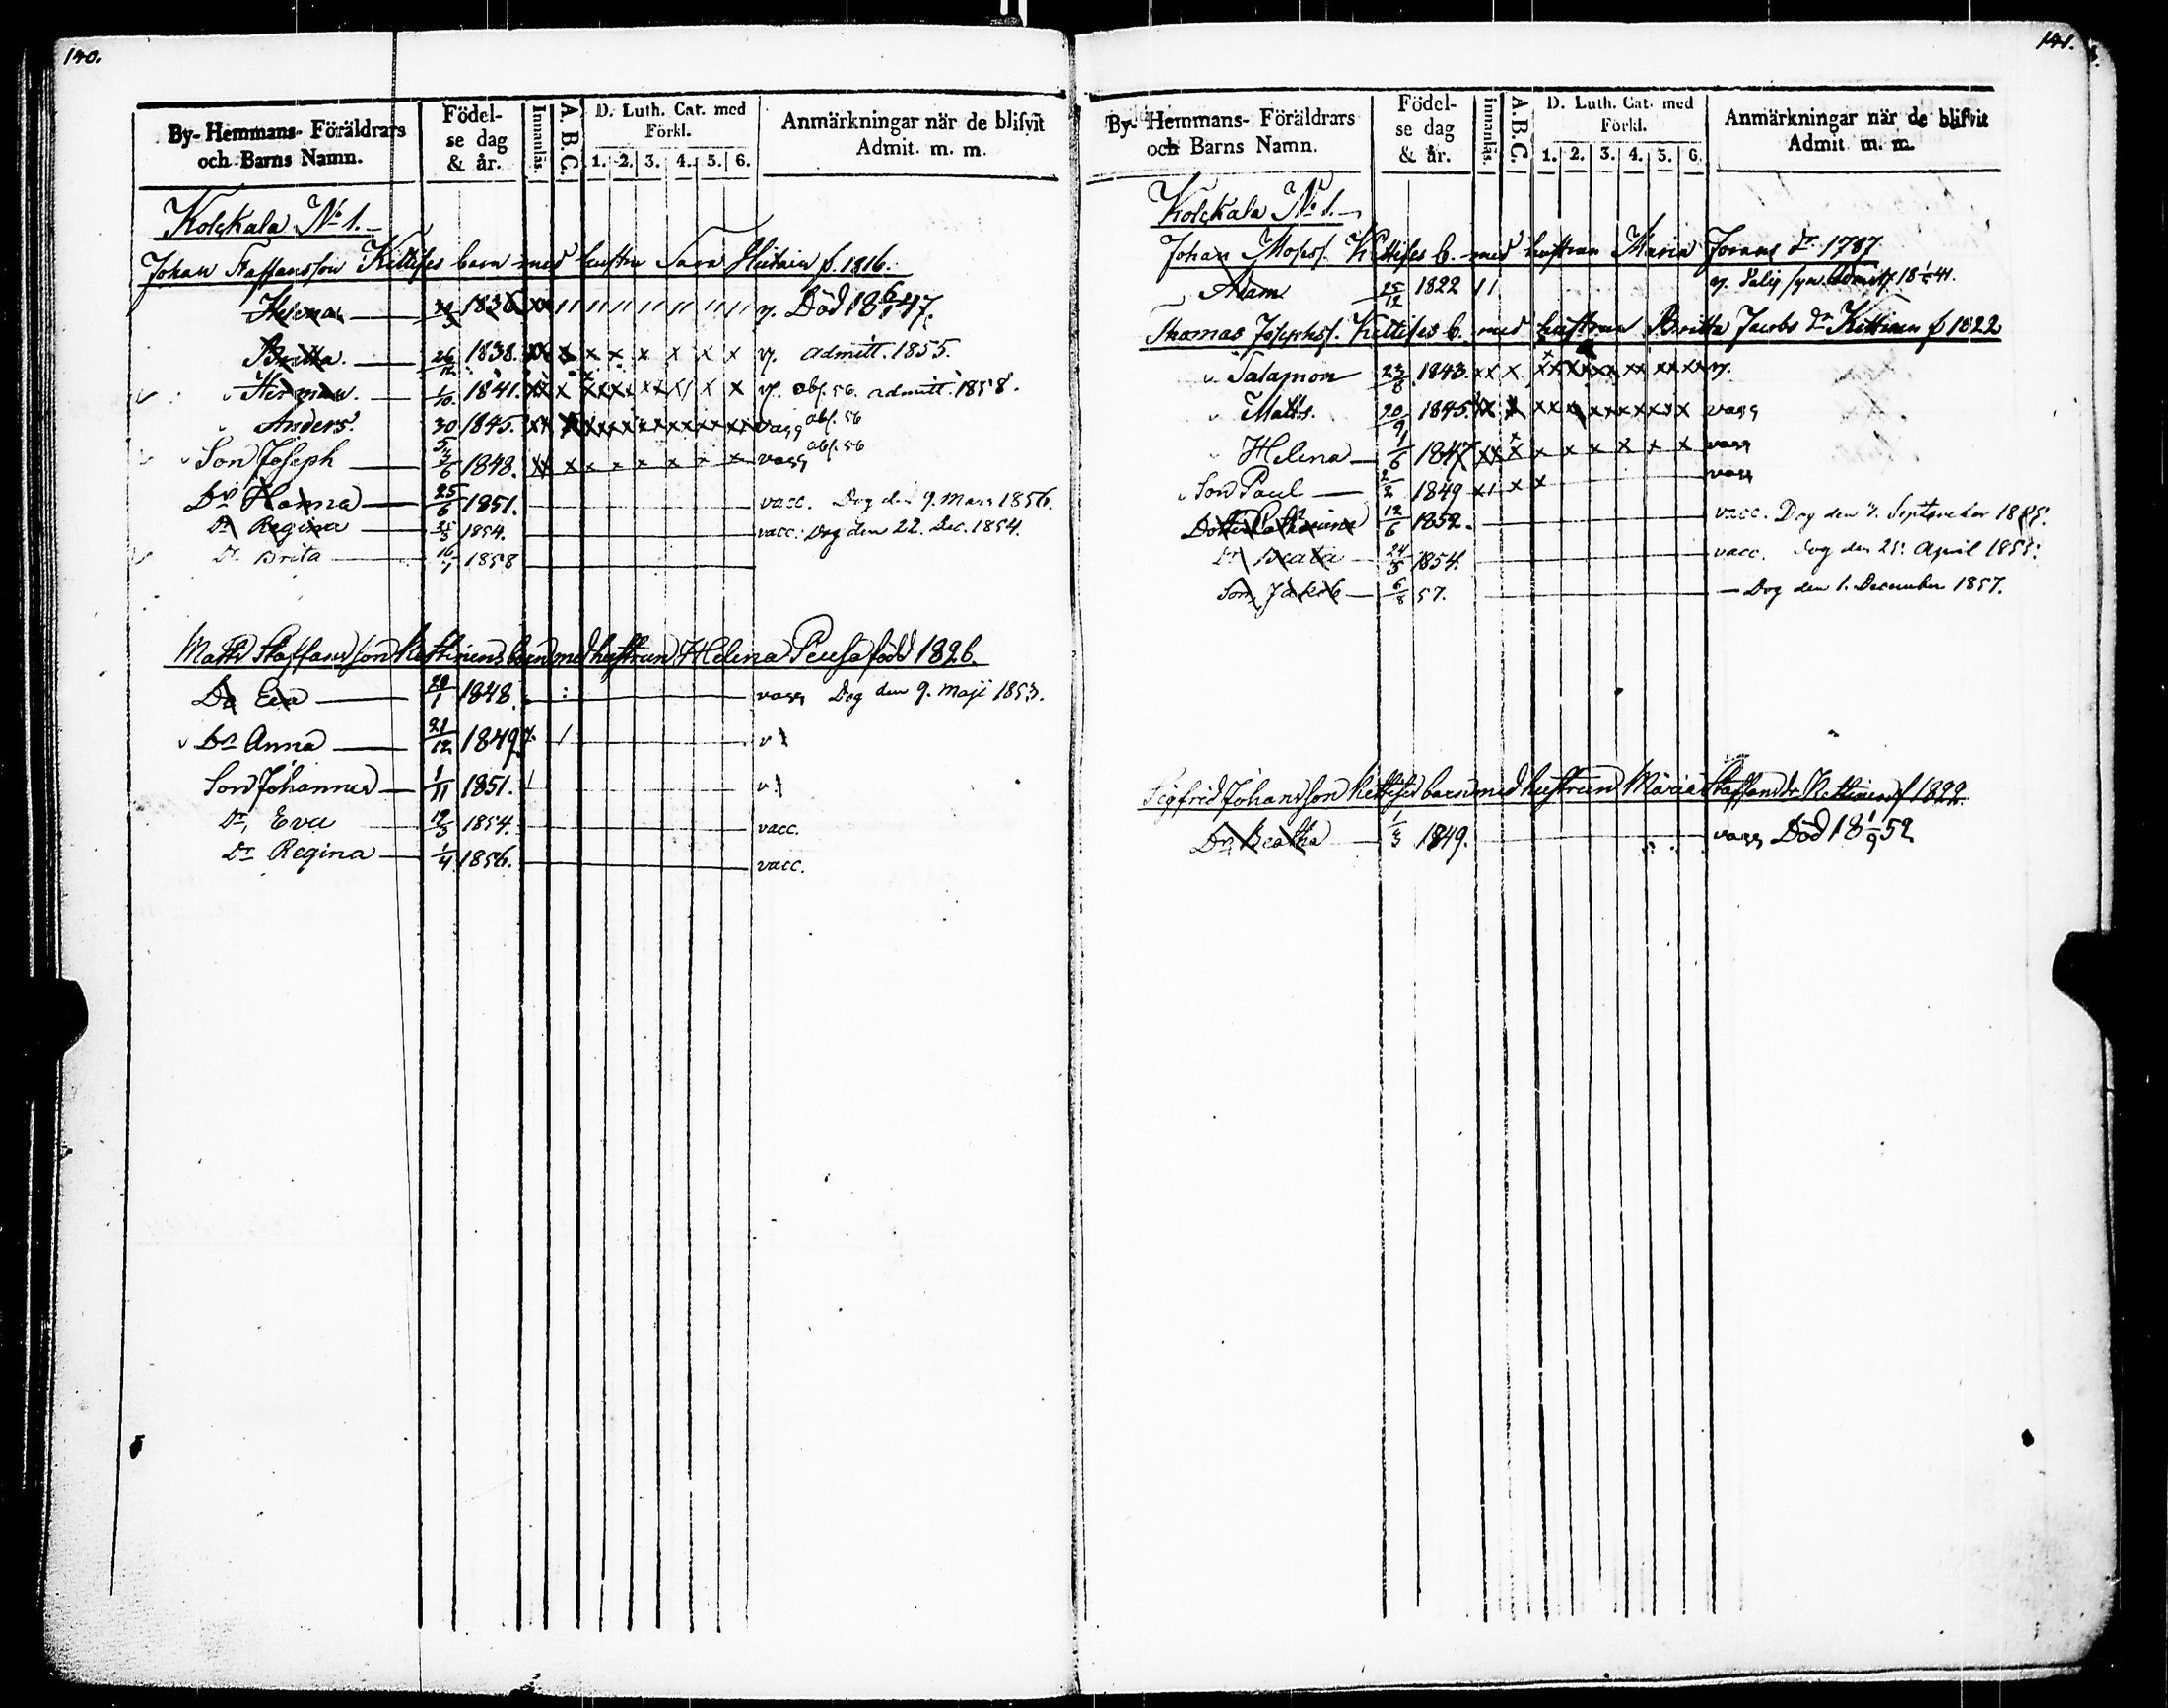 140.
By- Hemmans- Föräldrars och Barns Namn.
Födelse dag & år.
Innanläs.
A. B. C.
D. Luth. Cat. med Förkl.
1. 2. 3. 4. 5. 6.
Anmärkningar när de blifvit Admit. m. m.
Kolckala No 1.
Johan Staffansson Kettises barn med hustru Sara f. 1816.
Helena 1836 Död 18 6/1 47.
Britta. 26/12 1838. admitt. 1855.
Herman. 1/10 1841. abs. 56. admitt. 1858.
Anders. 30/5 1845. vacc abs. 56
Son Joseph 3/6 1848. vacc abs. 56
Dr Hanna 25/6 1851. vacc. Dog den 9. Mars 1856.
Dr Regina 25/3 1854. vacc. Dog den 22. Dec. 1854.
Dr Brita 16/1 1858
Matts Staffansson Kettinens barn med hustrun Helena Peusa född 1826.
Dr Eva 20/1 1848. vacc Dog den 9. Maji 1853.
Dr Anna 21/12 1849 v
Son Johannes 1/11 1851. v
Dr Eva 12/3 1854. vacc.
Dr Regina 1/4 1856. vacc.
141.
By- Hemmans- Föräldrars och Barns Namn.
Födelse dag & år.
innanläs.
A. B. C.
D. Luth. Cat. med Förkl.
1. 2. 3. 4. 5. 6.
Anmärkningar när de blifvit Admit. m. m.
Kolckala No 1.
Johan Moses. Kettises b. med hustrun Maria Jorans dr 1787
Adam 25/12 1822 admitt 18 41.
Thomas Josephs. Kettises b. med hustrun Britta Jacobs dr Kettinen f 1822
Salamon 23/8 1843.
Matts. 20/9 1845 vacc
Helena 1/6 1847 vacc
Son Paul 2/2 1849 vacc
Dotter Catharina 12/6 1852. vacc. Dog den 7. September 1855.
Dr Beata 24/5 1854. vacc. Dog den 25. April 1855.
Son Jakob 6/8 57. Dog den 1. December 1857.
Sigfrid Johansson Kettises barn med hustrun Maria Staffansdr Kettinen f 1822.
Dr Beatha 1/3 1849. vacc Död 18 1/9 52